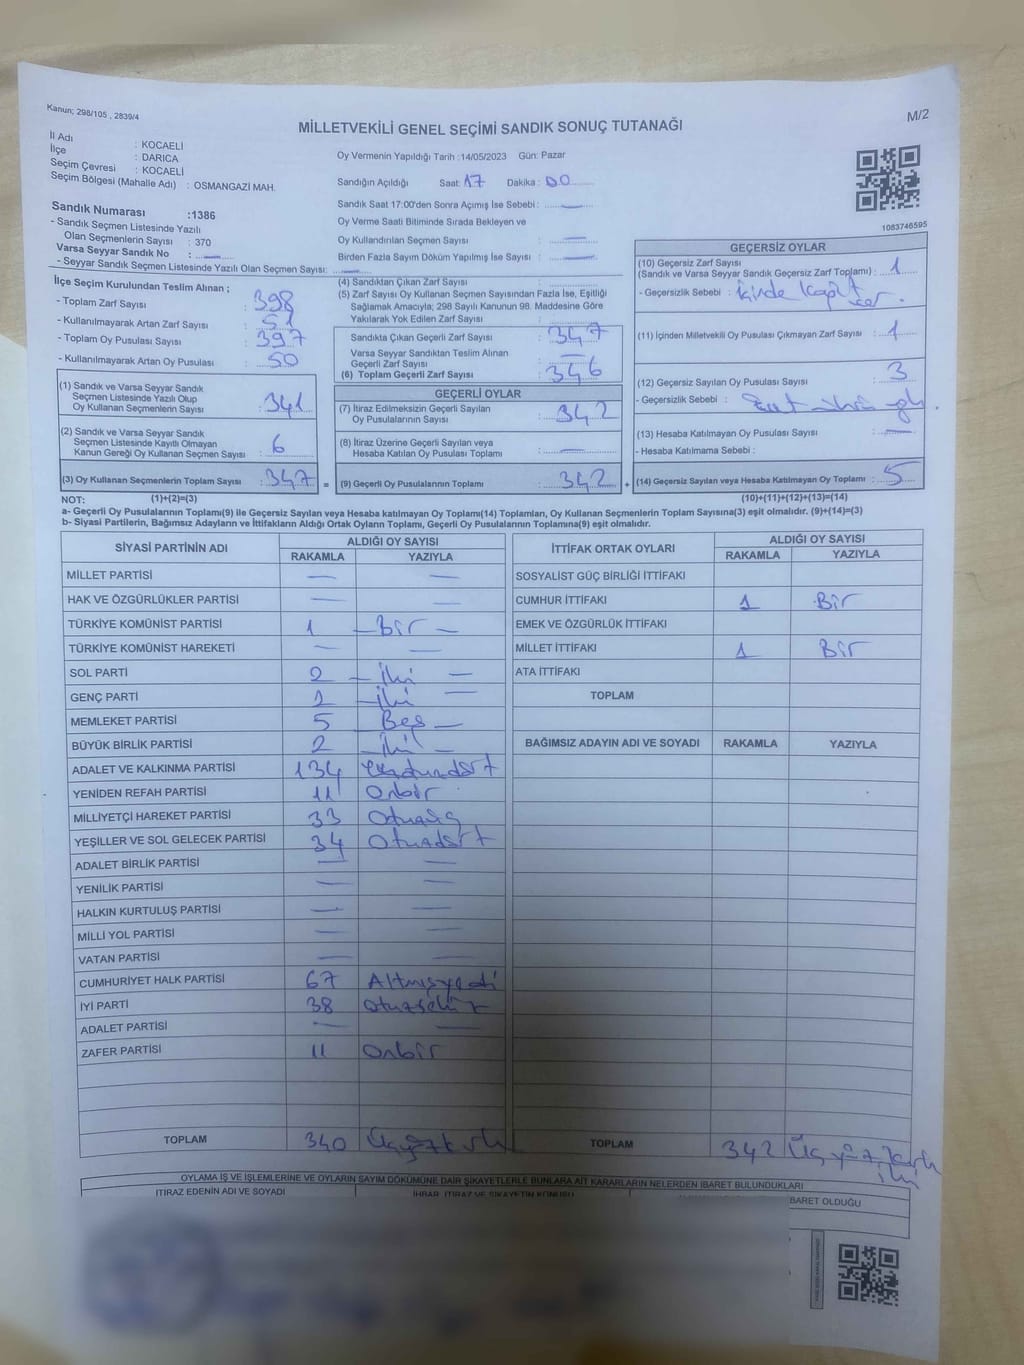 Kanun; 298/105 , 2839/4
M/2
MİLLETVEKİLİ GENEL SEÇİMİ SANDIK SONUÇ TUTANAĞI
İl Adı : KOCAELİ
İlçe : DARICA
Seçim Çevresi : KOCAELİ
Seçim Bölgesi (Mahalle Adı) : OSMANGAZİ MAH.
Oy Vermenin Yapıldığı Tarih :14/05/2023 Gün: Pazar
Sandığın Açıldığı Saat: 17 Dakika : 00
Sandık Saat 17:00'den Sonra Açımış İse Sebebi : —
Oy Verme Saati Bitiminde Sırada Bekleyen ve
Oy Kullandırılan Seçmen Sayısı : —
Birden Fazla Sayım Döküm Yapılmış İse Sayısı : —
Sandık Numarası :1386
- Sandık Seçmen Listesinde Yazılı
Olan Seçmenlerin Sayısı : 370
Varsa Seyyar Sandık No : —
- Seyyar Sandık Seçmen Listesinde Yazılı Olan Seçmen Sayısı: —
1083746595
İlçe Seçim Kurulundan Teslim Alınan ;
- Toplam Zarf Sayısı : 398
- Kullanılmayarak Artan Zarf Sayısı : 51
- Toplam Oy Pusulası Sayısı : 397
- Kullanılmayarak Artan Oy Pusulası : 50
(1) Sandık ve Varsa Seyyar Sandık
Seçmen Listesinde Yazılı Olup
Oy Kullanan Seçmenlerin Sayısı : 341
(2) Sandık ve Varsa Seyyar Sandık
Seçmen Listesinde Kayıtlı Olmayan
Kanun Gereği Oy Kullanan Seçmen Sayısı : 6
(3) Oy Kullanan Seçmenlerin Toplam Sayısı : 347 =
(4) Sandıktan Çıkan Zarf Sayısı :
(5) Zarf Sayısı Oy Kullanan Seçmen Sayısından Fazla İse, Eşitliği
Sağlamak Amacıyla; 298 Sayılı Kanunun 98. Maddesine Göre
Yakılarak Yok Edilen Zarf Sayısı :
Sandıkta Çıkan Geçerli Zarf Sayısı : 347
Varsa Seyyar Sandıktan Teslim Alınan
Geçerli Zarf Sayısı : —
(6) Toplam Geçerli Zarf Sayısı : 346
GEÇERLİ OYLAR
(7) İtiraz Edilmeksizin Geçerli Sayılan
Oy Pusulalarının Sayısı : 342
(8) İtiraz Üzerine Geçerli Sayılan veya
Hesaba Katılan Oy Pusulası Toplamı : —
(9) Geçerli Oy Pusulalarının Toplamı : 342 +
GEÇERSİZ OYLAR
(10) Geçersiz Zarf Sayısı
(Sandık ve Varsa Seyyar Sandık Geçersiz Zarf Toplamı) : 1
- Geçersizlik Sebebi : içinde
(11) İçinden Milletvekili Oy Pusulası Çıkmayan Zarf Sayısı : 1
(12) Geçersiz Sayılan Oy Pusulası Sayısı : 3
- Geçersizlik Sebebi :
(13) Hesaba Katılmayan Oy Pusulası Sayısı : —
- Hesaba Katılmama Sebebi :
(14) Geçersiz Sayılan veya Hesaba Katılmayan Oy Toplamı : 5
NOT: (1)+(2)=(3) (10)+(11)+(12)+(13)=(14)
a- Geçerli Oy Pusulalarının Toplamı(9) ile Geçersiz Sayılan veya Hesaba katılmayan Oy Toplamı(14) Toplamları, Oy Kullanan Seçmenlerin Toplam Sayısına(3) eşit olmalıdır. (9)+(14)=(3)
b- Siyasi Partilerin, Bağımsız Adayların ve İttifakların Aldığı Ortak Oyların Toplamı, Geçerli Oy Pusulalarının Toplamına(9) eşit olmalıdır.
SİYASİ PARTİNİN ADI ALDIĞI OY SAYISI
RAKAMLA YAZIYLA
MİLLET PARTİSİ — —
HAK VE ÖZGÜRLÜKLER PARTİSİ — —
TÜRKİYE KOMÜNİST PARTİSİ 1 — Bir —
TÜRKİYE KOMÜNİST HAREKETİ — —
SOL PARTİ 2 — İki —
GENÇ PARTİ 2 — İki —
MEMLEKET PARTİSİ 5 Beş —
BÜYÜK BİRLİK PARTİSİ 2 — İki —
ADALET VE KALKINMA PARTİSİ 134
YENİDEN REFAH PARTİSİ 11 Onbir
MİLLİYETÇİ HAREKET PARTİSİ 33 Otuzüç
YEŞİLLER VE SOL GELECEK PARTİSİ 34 Otuzdört
ADALET BİRLİK PARTİSİ — —
YENİLİK PARTİSİ — —
HALKIN KURTULUŞ PARTİSİ — —
MİLLİ YOL PARTİSİ — —
VATAN PARTİSİ — —
CUMHURİYET HALK PARTİSİ 67 Altmışyedi
İYİ PARTİ 38 otuzsekiz
ADALET PARTİSİ — —
ZAFER PARTİSİ 11 Onbir
TOPLAM 340 Üçyüzkırk
İTTİFAK ORTAK OYLARI ALDIĞI OY SAYISI
RAKAMLA YAZIYLA
SOSYALİST GÜÇ BİRLİĞİ İTTİFAKI
CUMHUR İTTİFAKI 1 Bir
EMEK VE ÖZGÜRLÜK İTTİFAKI
MİLLET İTTİFAKI 1 Bir
ATA İTTİFAKI
TOPLAM
BAĞIMSIZ ADAYIN ADI VE SOYADI RAKAMLA YAZIYLA
TOPLAM 342 Üçyüzkırk
iki
OYLAMA İŞ VE İŞLEMLERİNE VE OYLARIN SAYIM DÖKÜMÜNE DAİR ŞİKAYETLERLE BUNLARA AİT KARARLARIN NELERDEN İBARET BULUNDUKLARI
İTİRAZ EDENİN ADI VE SOYADI İHBAR, İTİRAZ VE ŞİKAYETİN KONUSU BARET OLDUĞU